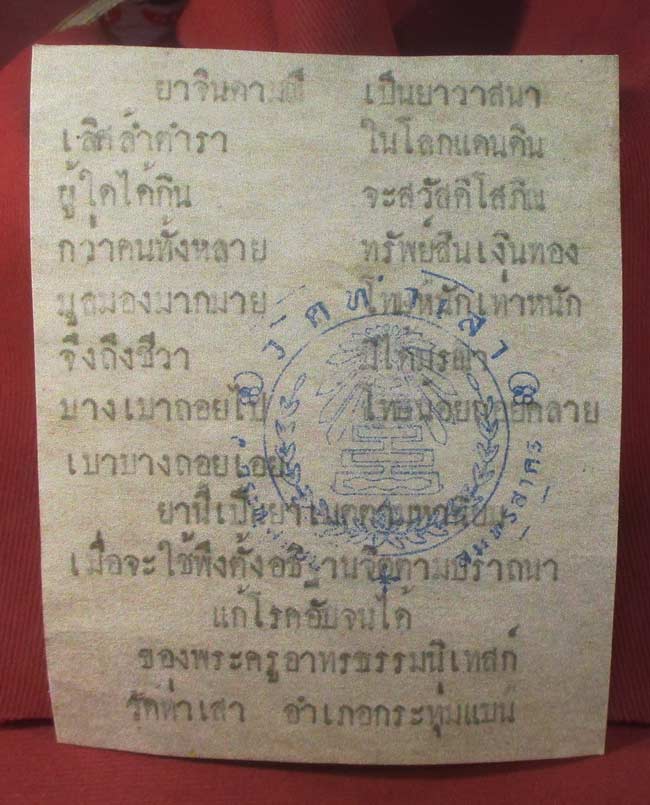 ยาจินดามณี เป็นยาวาสนา
เลิศล้ำตำรา ในโลกแดนดิน
ผู้ใดได้กิน จะสวัสดิโสภิณ
กว่าคนทั้งหลาย ทรัพย์สินเงินทอง
มูลมองมากมาย โทษหนักเท่าหนัก
จึงถึงชีวา มิได้มรณา
บางเบาถอยไป โทษน้อยถอยคลาย
เบาบางถอยเอย
ยานี้เป็นยาเมตตามหานิยม
เมื่อจะใช้พึงตั้งอธิฐานจิตตามปราถนา
แก้โรคอับจนได้
ของพระครูอาทรธรรมนิเทสก์
วัดท่าเสา อำเภอกระทุ่มแบน
วัดท่าเสา
สมุทรสาคร